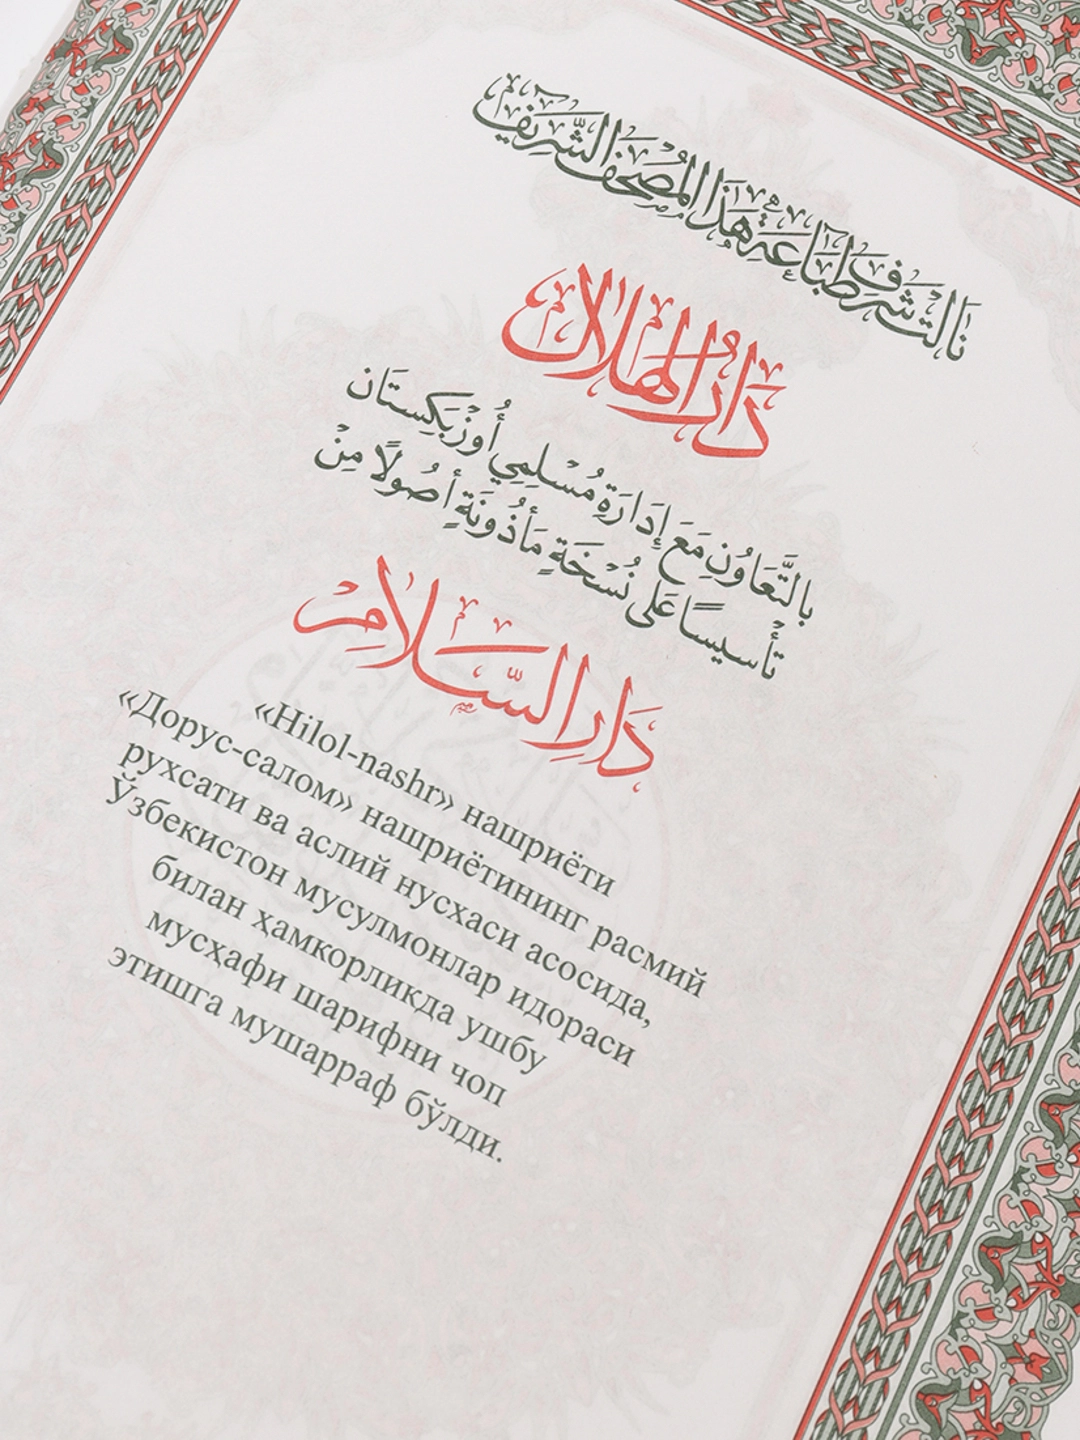 نَالَتْ شَرَفَ طِبَاعَةِ هٰذَا الْمُصْحَفِ الشَّرِيْفِ
دَارُ الْهِلَالِ
بِالتَّعَاوُنِ مَعَ إِدَارَةِ مُسْلِمِي أُوزْبَكِسْتَان
تَأْسِيسًا عَلَى نُسْخَةٍ مَأْذُونَةٍ أُصُولًا مِنْ
دَارِ السَّلَامِ
«Hilol-nashr» нашриёти
«Дорус-салом» нашриётининг расмий
рухсати ва аслий нусхаси асосида,
Ўзбекистон мусулмонлар идораси
билан ҳамкорликда ушбу
мусҳафи шарифни чоп
этишга мушарраф бўлди.